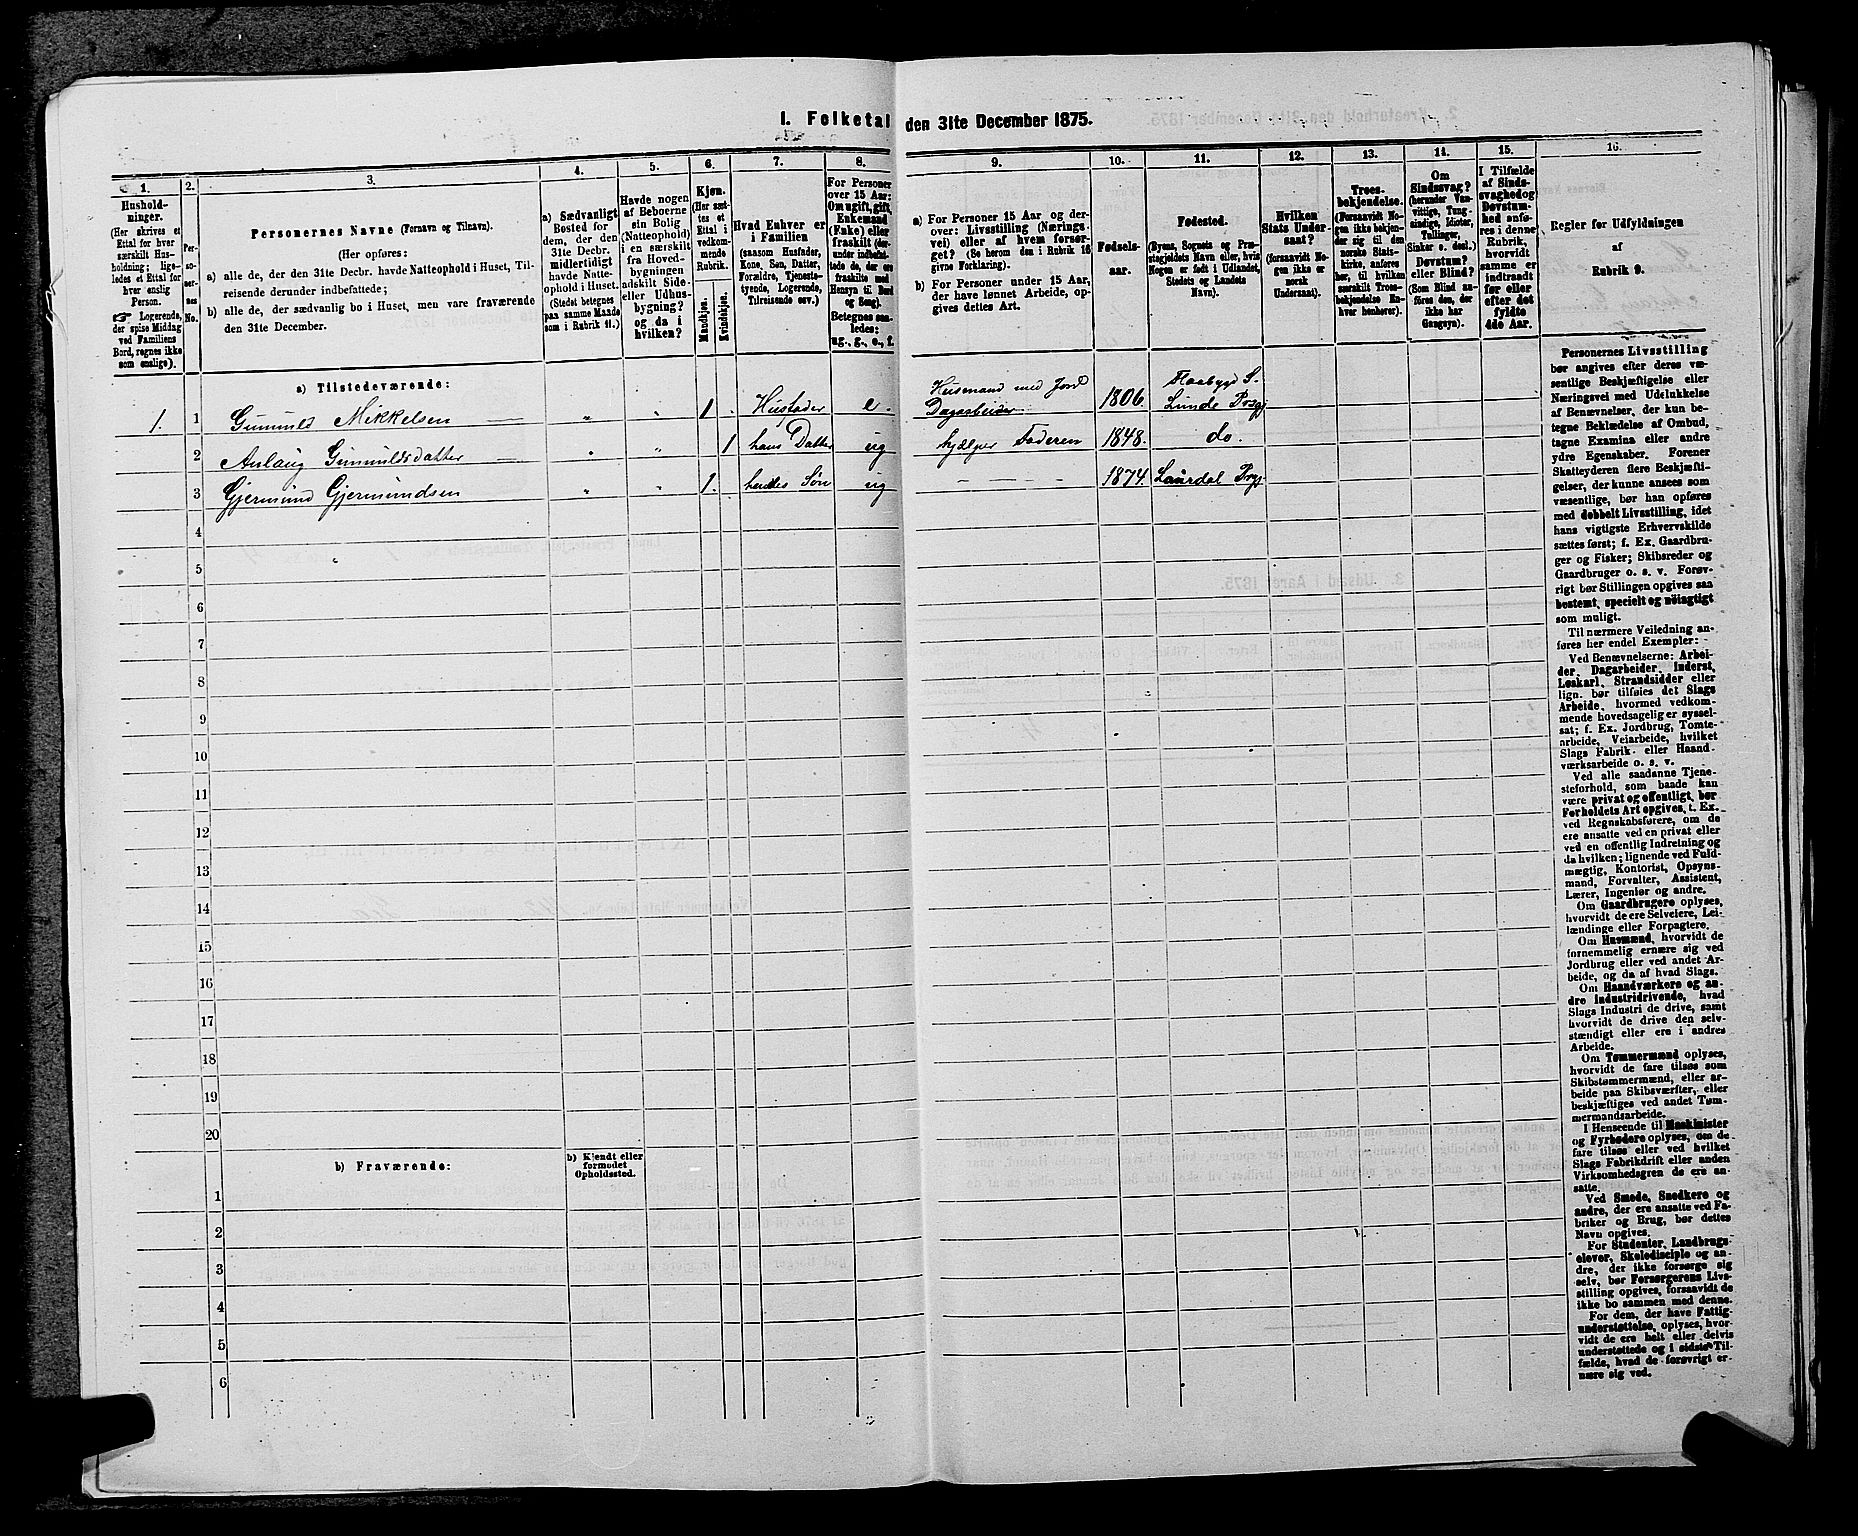 1. Folketal den 31te December 1875.
1.
Hushold-
ninger.
(Her skrives et
Ettal for hver
særskilt Hus-
holdning; lige-
ledes et Ettal for
hver enslig
Person.
☞ Logerende,
der spise Middag
ved Familiens
Bord, regnes ikke
som enslige).
2.
Per-
so-
ner-
nes
No.
3.
Personernes Navne (Fornavn og Tilnavn).
(Her opføres:
a) alle de, der den 31te Decbr. havde Natteophold i Huset, Til-
reisende derunder indbefattede;
b) alle de, der sædvanlig bo i Huset, men vare fraværende
den 31te December.
4.
a) Sædvanligt
Bosted for
dem, der den
31te Decbr.
midlertidigt
havde Natte-
ophold i Huset.
(Stedet betegnes
paa samme Maade
som i Rubrik 11.)
5.
Havde nogen
af Beboerne
sin Bolig
(Natteophold)
i en særskilt
fra Hoved-
bygningen
adskilt Side-
eller Udhus-
bygning?
og da i
hvilken?
6.
Kjøn.
(Her sæt-
tes et
Ettal i
vedkom-
mende
Rubrik.
Mandkjøn.
Kvindekjøn.
7.
Hvad Enhver er
i Familien
(saasom Husfader,
Kone, Søn, Datter,
Forældre, Tjeneste-
tyende, Logerende,
Tilreisende osv.)
8.
For Personer
over 15 Aar:
Om ugift, gift,
Enkemand
(Enke) eller
fraskilt (der-
under indbefat-
tede de, der ere
fraskilte med
Hensyn til Bord
og Seng).
Betegnes saa-
ledes:
ug., g., e., f.
9.
a) For Personer 15 Aar og der-
over: Livsstilling (Nærings-
vei) eller af hvem forsør-
get? (Se herom den i Rubrik 16
givne Forklaring).
b) For Personer under 15 Aar,
der have lønnet Arbeide, op-
gives dettes Art.
10.
Fødsels-
aar.
11.
Fødested.
(Byens, Sognets og Præ-
stegjeldets Navn eller, hvis
Nogen er født i Udlandet,
Stedets og Landets
Navn).
12.
Hvilken
Stats Under-
saat?
(forsaavidt No-
gen ikke er
norsk
Undersaat).
13.
Troes-
bekjendelse.
(Forsaavidt No-
gen ikke bekjen-
der sig til den
norske Stats-
kirke, anføres
her, til hvilken
særskilt Troes-
bekjendelse En-
hver henhører).
14.
Om
Sindssvag?
(herunder Van-
vittige, Tung-
sindige, Idioter,
Tullinger,
Sinker o. desl.)
Døvstum?
eller Blind?
(Som Blind an-
føres den, der
ikke har
Gangsyn).
15.
I Tilfælde
af Sinds-
svaghed og
Døvstum-
hed anfø-
res i denne
Rubrik,
hvorvidt
samme er
indtraadt
før eller
efter det
fyldte
4de Aar.
16.
Regler for Udfyldningen
af
Rubrik 9.
a) Tilstedeværende:
1. 1 Gunnuld Mikkelsen — „ „ 1 . Husfader e. Husmand med Jord Dagarbeider 1806. Flaabygd S. Lunde Prgj
2 Aslaug Gunnuldsdatter — „ „ 1 hans Datter ug hjælper Faderen 1848. do.
3 Gjermund Gjermundsen „ „ 1. hendes Søn ug — — — — 1874. Laurdal Prgj
4
5
6
7
8
9
10
11
12
13
14
15
16
17
18
19
20
b) Fraværende:
b) Kjendt eller
formodet
Opholdssted.
1
2
3
4
5
6
Personernes Livsstilling
bør angives efter deres væ-
sentlige Beskjæftigelse eller
Næringsvei med Udelukkelse
af Benævnelser, der kun be-
tegne Beklædelse af Ombud,
tagne Examina eller andre
ydre Egenskaber. Forener
Skatteyderen flere Beskjæfti-
gelser, der kunne ansees som
væsentlige, bør han opføres
med dobbelt Livsstilling, idet
hans vigtigste Erhvervskilde
sættes først; f. Ex. Gaardbru-
ger og Fisker; Skibsreder og
Gaardbruger o. s. v. Forøv-
rigt bør Stillingen opgives saa
bestemt, specielt og nøiagtigt
som muligt.
Til nærmere Veiledning an-
føres her endel Exempler:
Ved Benævnelserne: Arbei-
der, Dagarbeider, Inderst,
Løskarl, Strandsidder eller
lign. bør tilføies det Slags
Arbeide, hvormed vedkom-
mende hovedsagelig er syssel-
sat; f. Ex. Jordbrug, Tomte-
arbeide, Veiarbeide, hvilket
Slags Fabrik- eller Haand-
værksarbeide o. s. v.
Ved alle saadanne Tjene-
steforhold, som baade kan
være privat og offentligt, bør
Forholdets Art opgives, t. Ex.
ved Regnskabsførere, om de
ere ansatte ved en privat eller
ved en offentlig Indretning og
da hvilken; lignende ved Fuld-
mægtig, Kontorist, Opsyns-
mand, Forvalter, Assistent,
Lærer, Ingeniør og andre.
Om Gaardbrugere oplyses,
hvorvidt de ere Selveiere, Lei-
lændinge eller Forpagtere.
Om Husmænd, hvorvidt de
fornemmelig ernære sig ved
Jordbrug eller ved andet Ar-
beide, og da af hvad Slags.
Om Haandværkere og an-
dre Industridrivende, hvad
Slags Industri de drive, samt
hvorvidt de drive den selv-
stændigt eller ere i andres
Arbeide.
Om Tømmermænd oplyses,
hvorvidt de fare tilsøs som
Skibstømmermænd, eller ar-
beide paa Skibsværfter, eller
beskjæftiges ved andet Tøm-
mermandsarbeide.
I Henseende til Maskinister
og Fyrbødere oplyses, om de
fare tilsøs eller ved hvilket
Slags Fabrikdrift eller anden
Virksomhedsgren de ere an-
satte.
Ved Smede, Snedkere og
andre, der ere ansatte ved Fa-
briker og Brug, bør dettes
Navn opgives.
For Studenter, Landbrugs-
elever, Skoledisciple og an-
dre, der ikke forsørge sig
selv, bør Forsørgerens Livs-
stilling opgives, forsaavidt de
ikke bo sammen med denne.
For dem, der have Fattig-
understøttelse, oplyses, hvor-
vidt de ere helt eller delvis
understøttede og i sidste Til-
fælde, hvad de forøvrigt er-
nære sig ved.